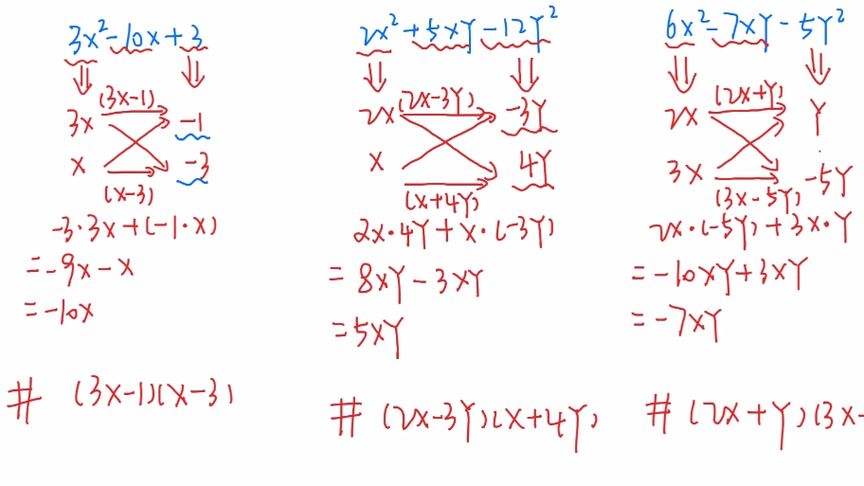 3x²-10x+3
3x (3x-1) -1
x (x-3) -3
-3·3x+(-1·x)
=-9x-x
=-10x
# (3x-1)(x-3)
2x²+5xy-12y²
2x (2x-3y) -3y
x (x+4y) 4y
2x·4y+x·(-3y)
=8xy-3xy
=5xy
# (2x-3y)(x+4y)
6x²-7xy-5y²
2x (2x+y) y
3x (3x-5y) -5y
2x·(-5y)+3x·y
=-10xy+3xy
=-7xy
# (2x+y)(3x-